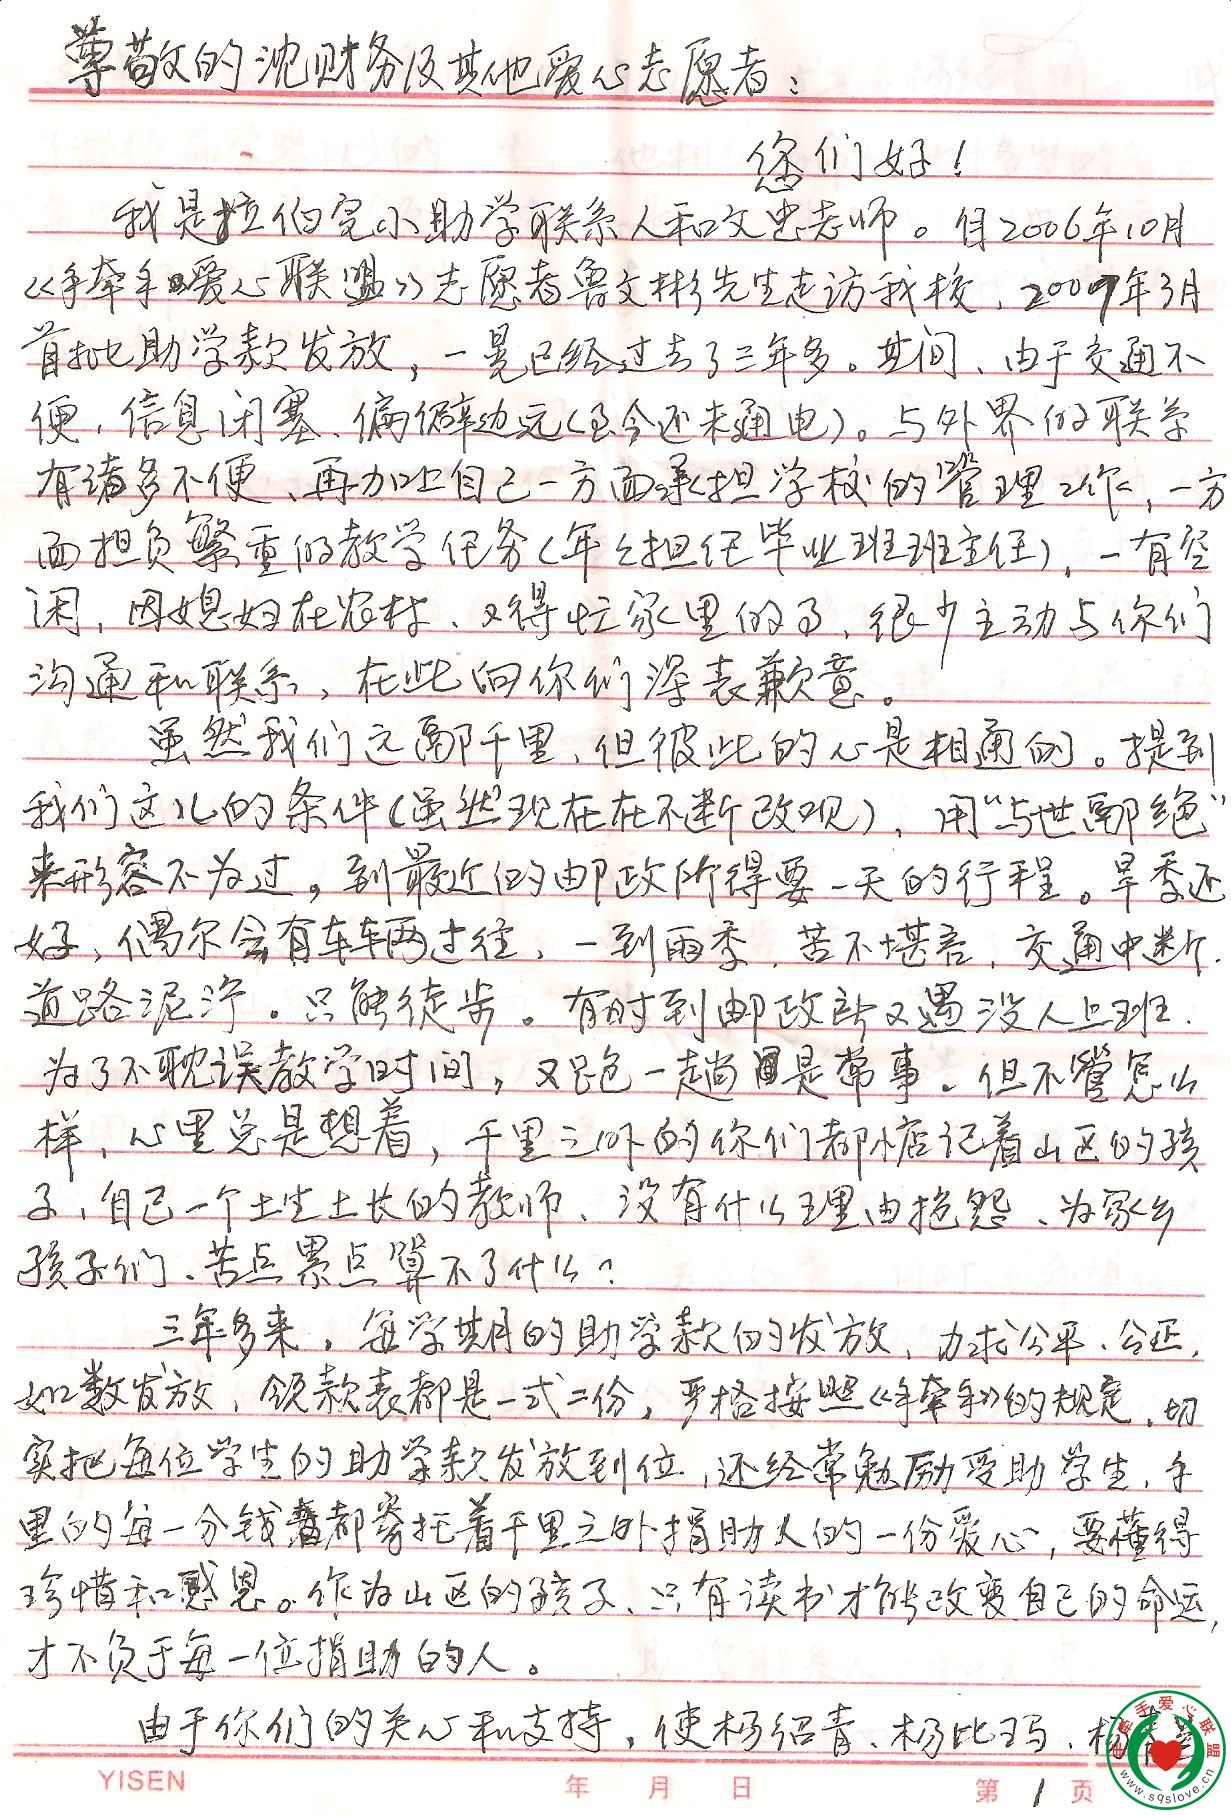 尊敬的沈财务及其他爱心志愿者：
您们好！
我是拉伯完小助学联系人和文忠老师。自2006年10月
《手牵手爱心联盟》志愿者鲁文彬先生走访我校、2007年3月
首批助学款发放，一晃已经过去了三年多。其间、由于交通不
便，信息闭塞、偏僻边远（至今还未通电）。与外界的联系
有诸多不便、再加上自己一方面承担学校的管理工作，一方
面担负繁重的教学任务（年年担任毕业班班主任），一有空
闲，因媳妇在农村、又得忙家里的事，很少主动与你们
沟通和联系，在此向你们深表歉意。
虽然我们远隔千里，但彼此的心是相通的。提到
我们这儿的条件（虽然现在在不断改观），用“与世隔绝”
来形容不为过，到最近的邮政所得要一天的行程。旱季还
好、偶尔会有车辆过往，一到雨季，苦不堪言，交通中断，
道路泥泞。只能徒步。有时到邮政所又遇没人上班．
为了不耽误教学时间，又跑一趟是常事．但不管怎么
样，心里总是想着，千里之外的你们都惦记着山区的孩
子，自己一个土生土长的教师、没有什么理由抱怨、为家乡
孩子们、苦点累点算不了什么？
三年多来，每学期的助学款的发放，力求公平、公正，
如数发放，领款表都是一式二份，严格按照《手牵手》的规定，切
实把每位学生的助学款发放到位，还经常勉励受助学生，手
里的每一分钱都寄托着千里之外捐助人的一份爱心，要懂得
珍惜和感恩。作为山区的孩子、只有读书才能改变自己的命运，
才不负于每一位捐助的人。
由于你们的关心和支持，使杨绍青、杨比玛、杨
YISEN 年 月 日 第 1 页
手牵手爱心联盟
www.sqslove.cn